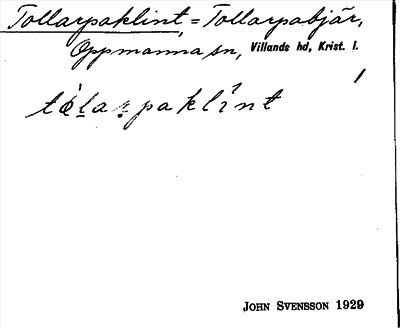 Tollarpaklint, = Tollarpabjär,
Oppmanna sn, Villands hd, Krist. l.
1
JOHN SVENSSON 1929